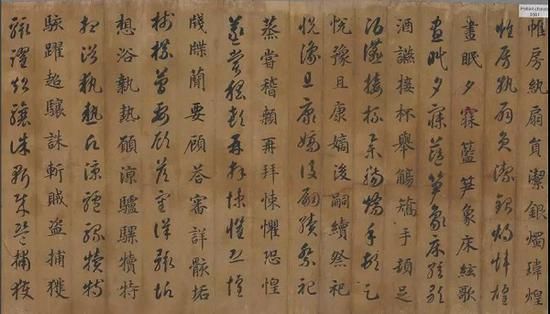 帷房紈扇員潔銀燭瑋煌
帷房紈扇員潔銀燭瑋煌
晝眠夕寐藍笋象床絃歌
晝眠夕寐藍笋象床絃歌
酒讌接杯舉觴矯手頓足
酒讌接杯舉觴矯手頓足
悅豫且康嫡後嗣續祭祀
悅豫且康嫡後嗣續祭祀
蒸嘗稽顙再拜悚懼恐惶
蒸嘗稽顙再拜悚懼恐惶
牋牒簡要顧荅審詳骸垢
牋牒簡要顧荅審詳骸垢
想浴執熱願涼驢騾犢特
想浴執熱願涼驢騾犢特
駭躍超驤誅斬賊盜捕獲
駭躍超驤誅斬賊盜捕獲